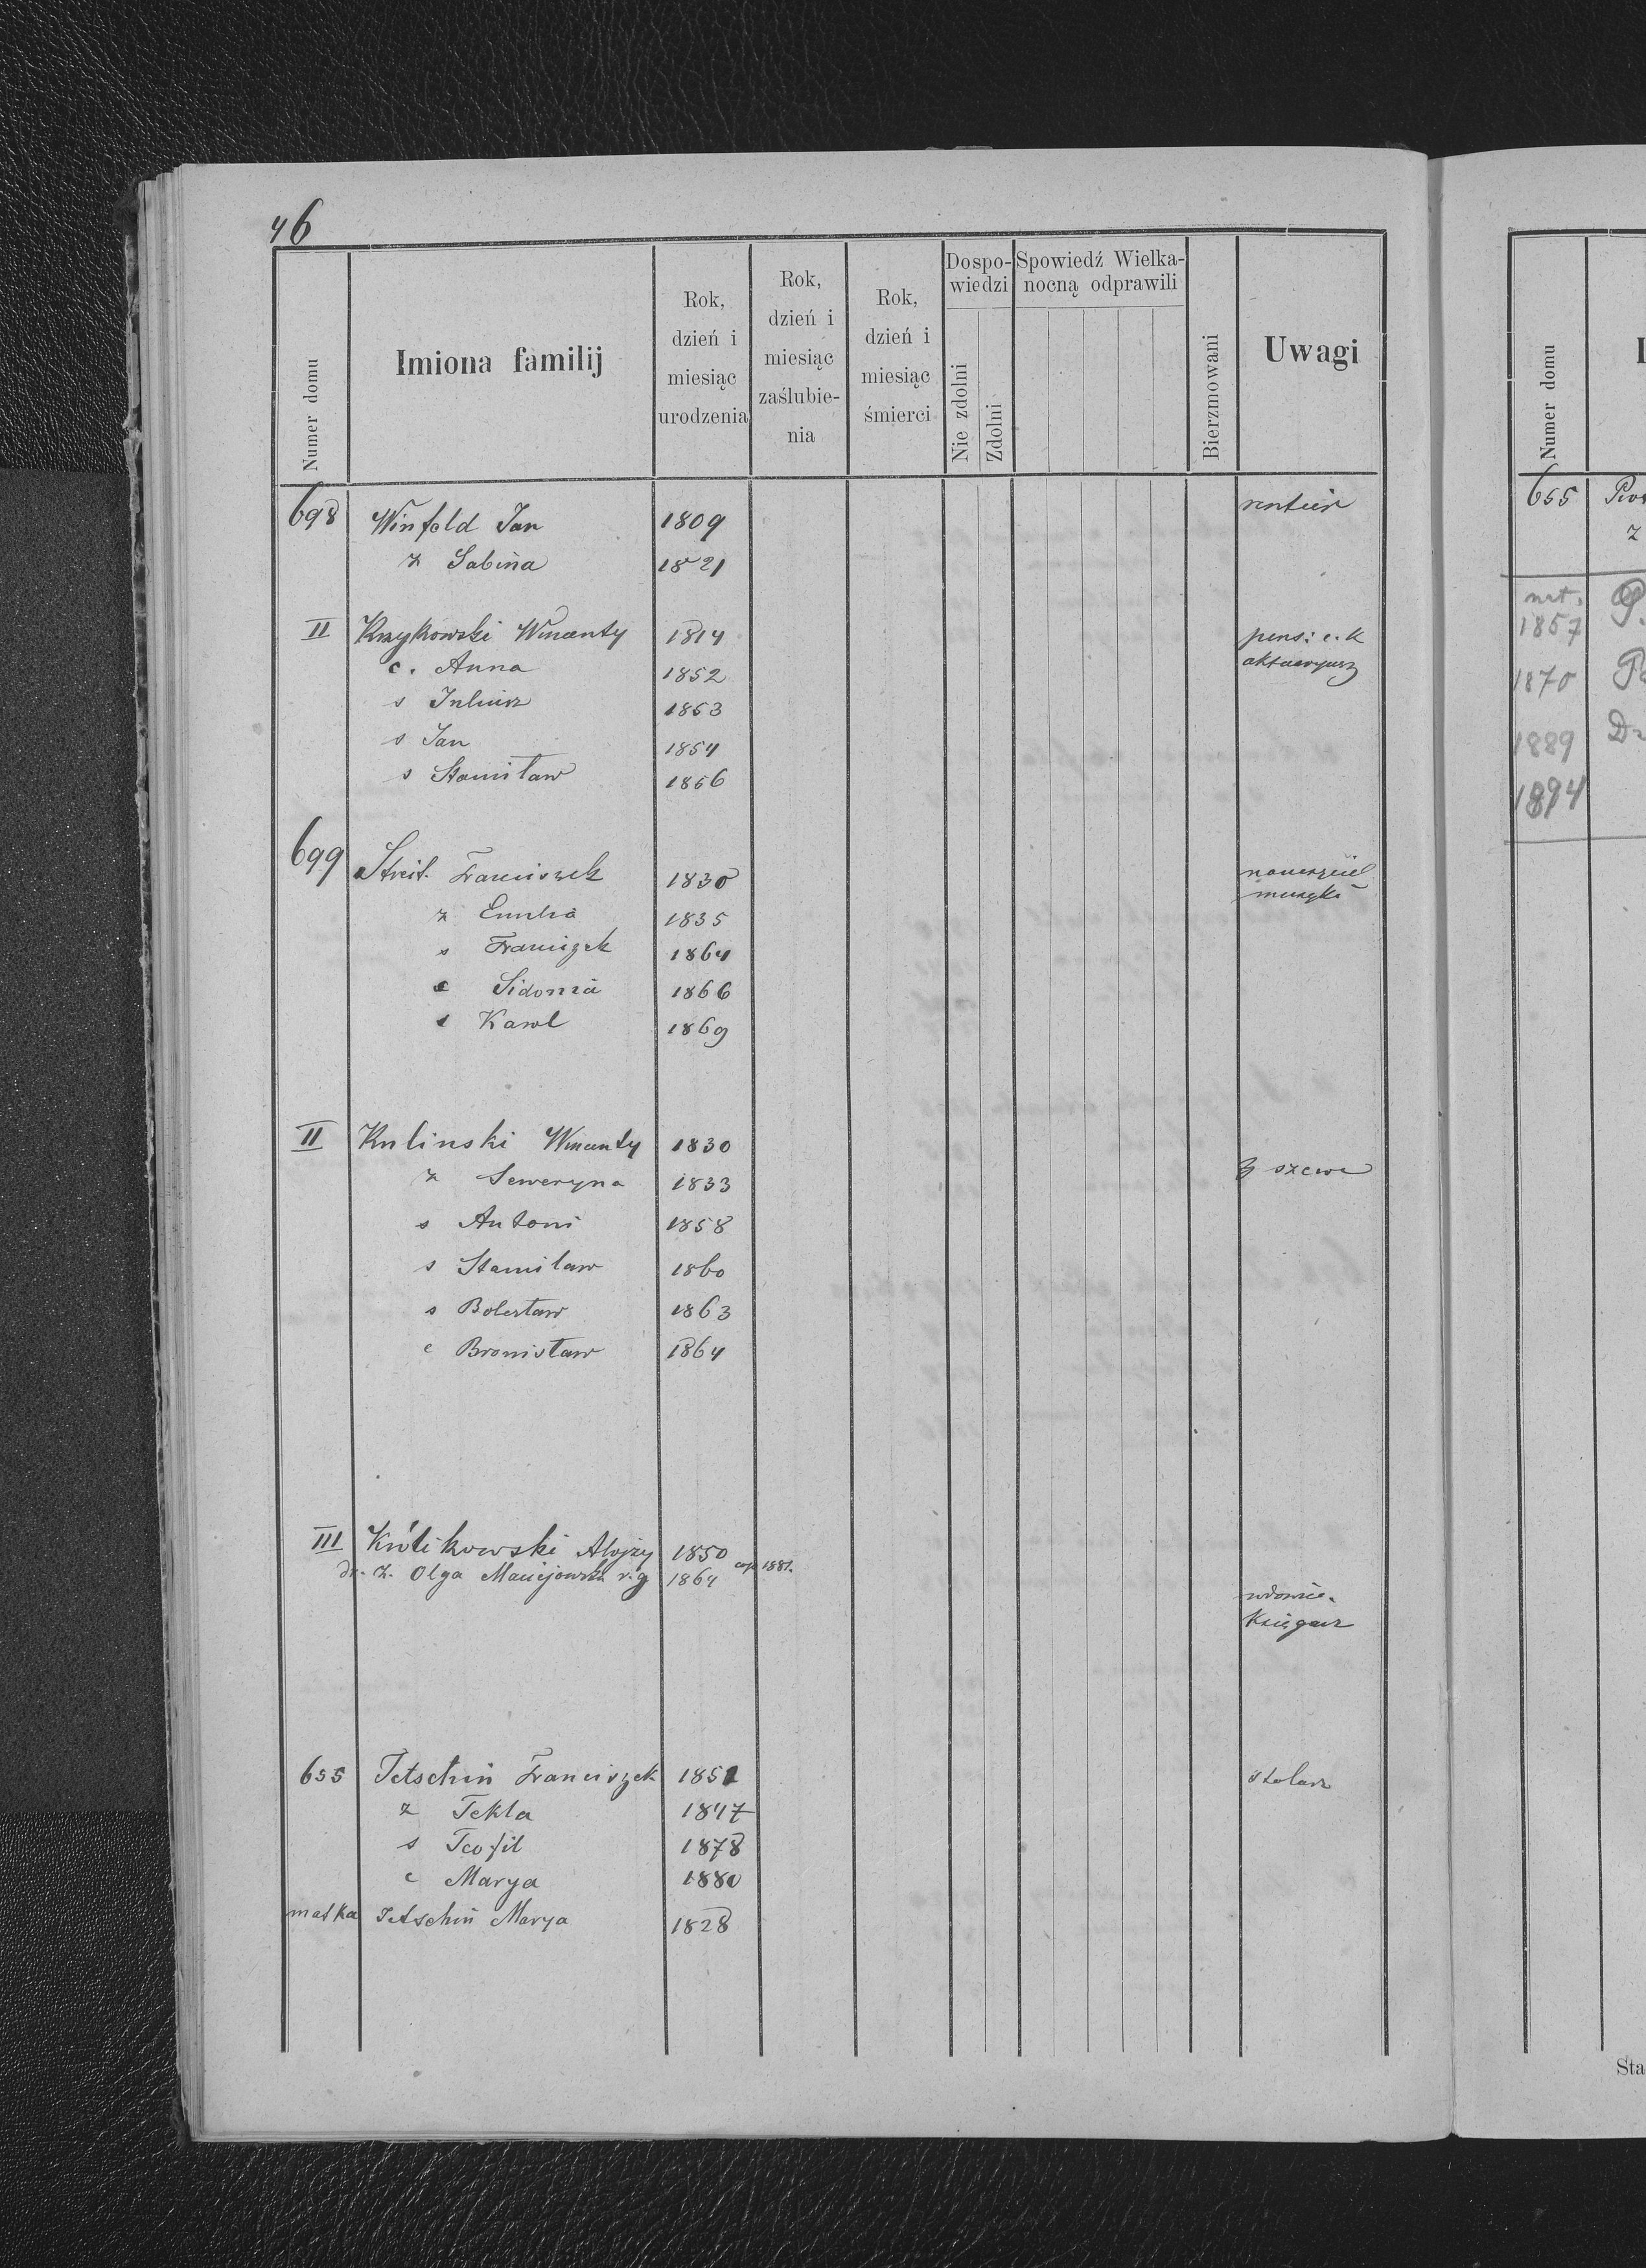 46
Numer domu
Imiona familij
Rok, dzień i miesiąc urodzenia
Rok, dzień i miesiąc zaślubie-nia
Rok, dzień i miesiąc śmierci
Dospo-wiedzi
Nie zdolni
Zdolni
Spowiedź Wielka-nocną odprawili
Bierzmowani
Uwagi
698 Winfeld Jan 1809 rentier
ż Sabina 1821
II Krzykowski Wincenty 1814 pens: c. k
c. Anna 1852 aktuaryusz
s Juliusz 1853
s Jan 1854
s Stanisław 1856
699 Streit Franciszek 1830 nauczyciel
muzyki
ż Emilia 1835
s Franciszek 1864
c Sidonia 1866
s Karol 1869
II Kulinski Wincenty 1830
ż Seweryna 1833 szewc
s Antoni 1858
s Stanisław 1860
s Bolesław 1863
c Bronisław 1864
III Królikowski Alojzy 1850
dr. ż. Olga Maciejowska r. g 1864 cop 1881.
wdowiec
Księgarz
655 Tetschin Franciszek 1851 stolarz
ż Tekla 1847
s Teofil 1878
c Marya 1880
matka Tetschin Marya 1828
Numer domu
655
ż
nat.
1857
1870
1889 Dr
1894
Sta